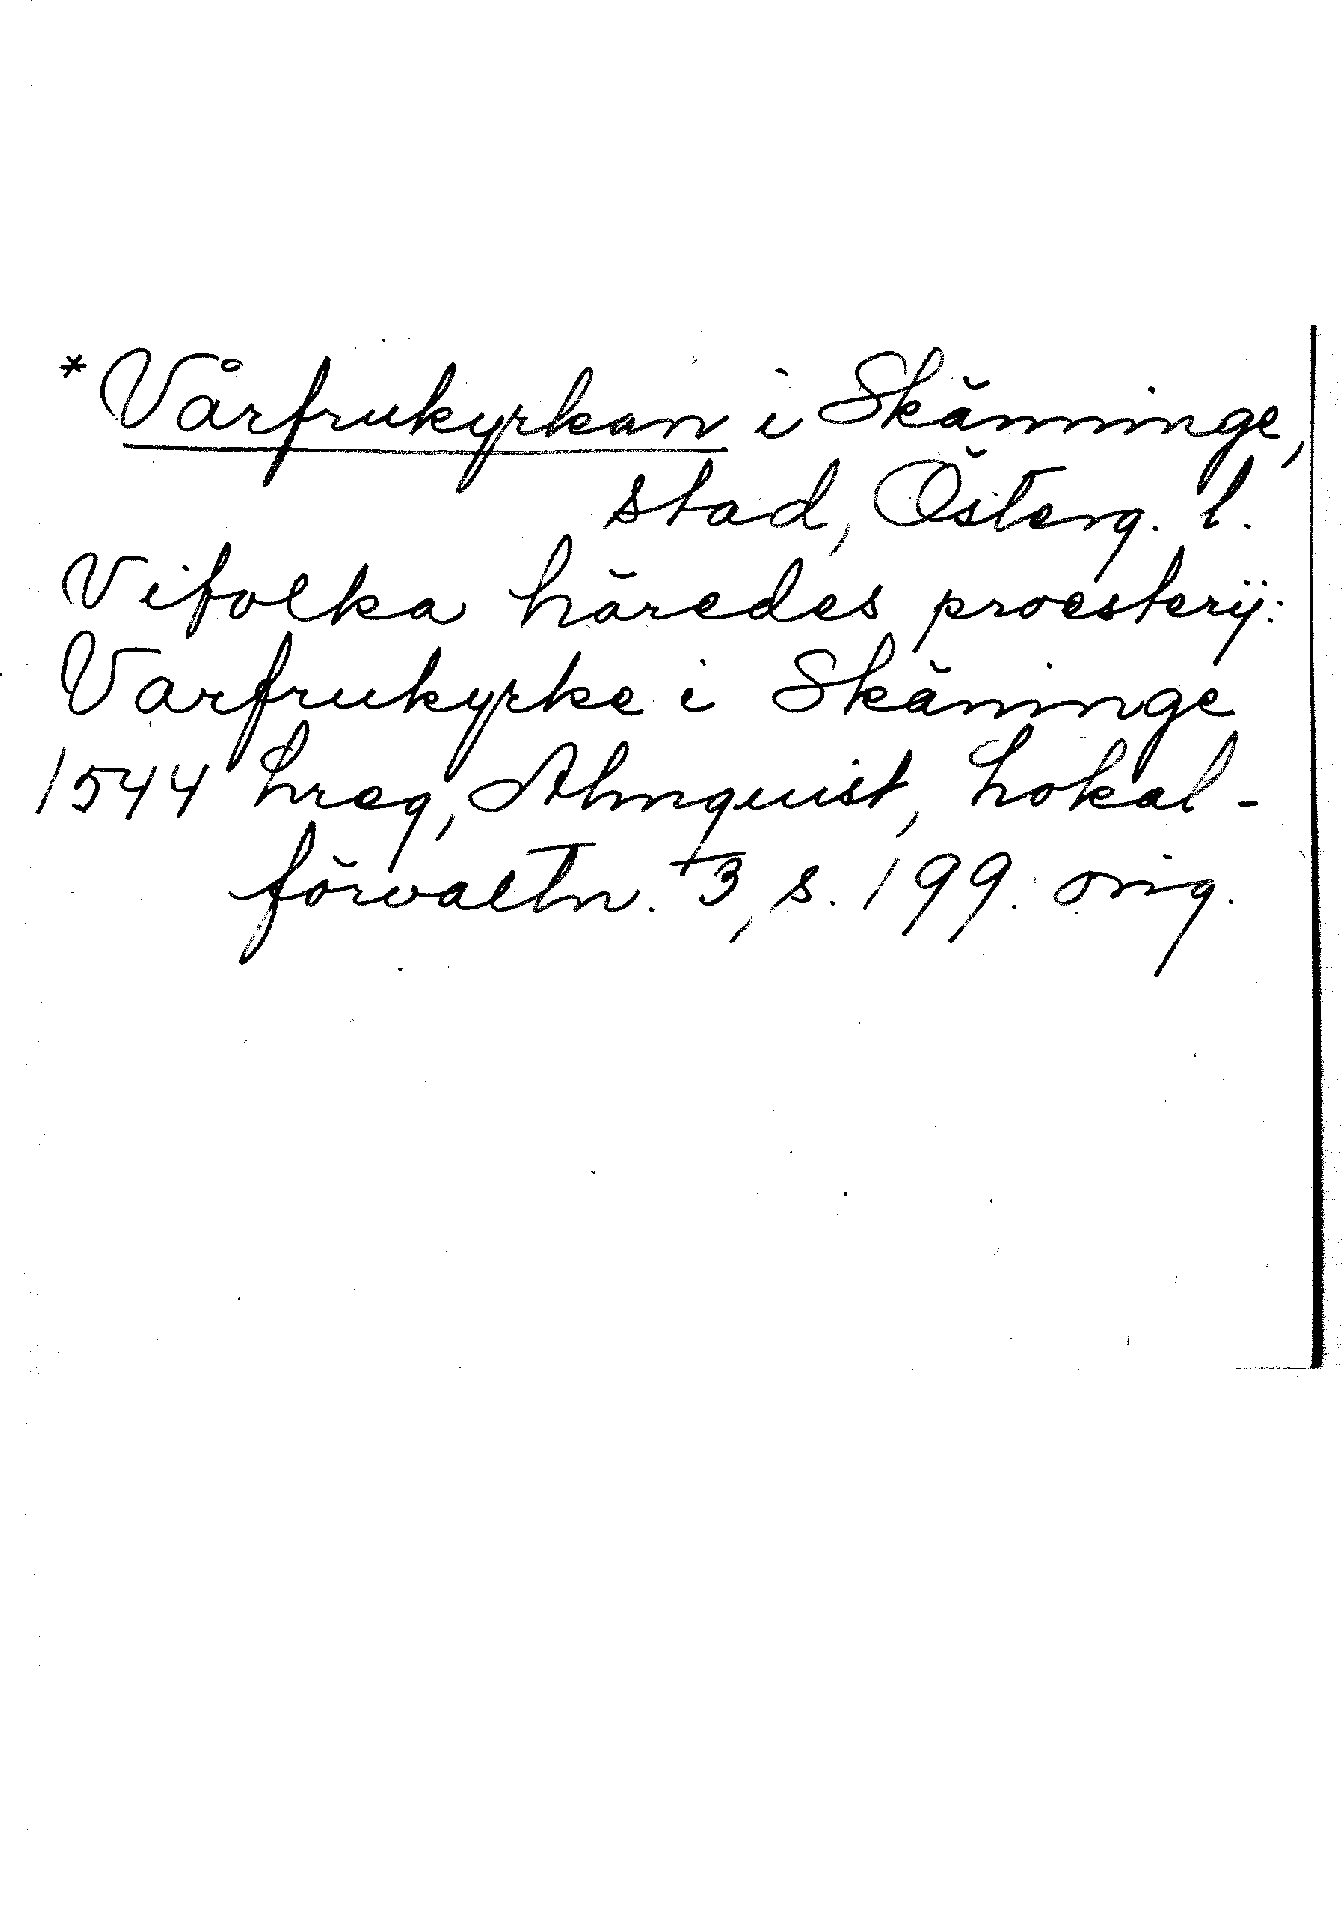 *Vårfrukyrkan i Skänninge,
stad, Österg. l.
Vifolka häredes proesterÿ:
Varfrukyrke i Skäninge
1544 hreg, Almquist, Lokal-
förvaltn. 3, s. 199. orig.